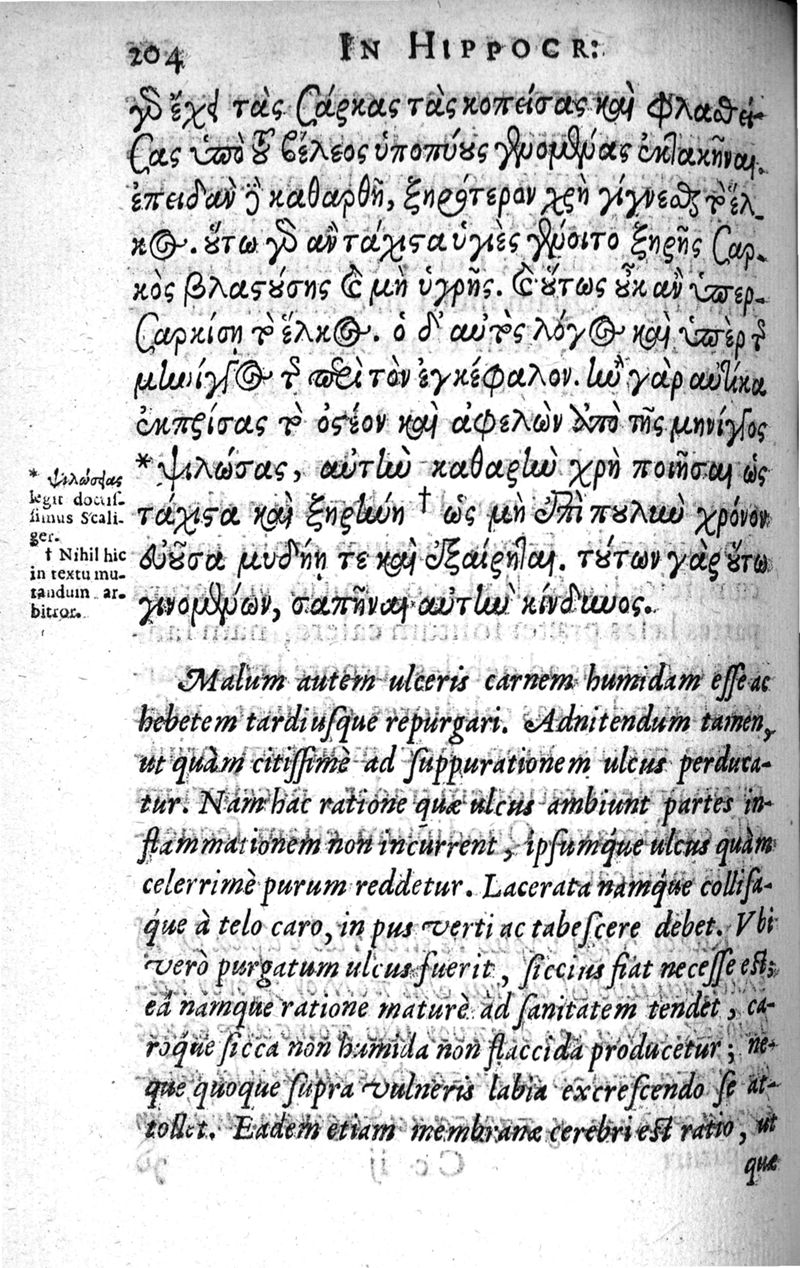 204 IN HIPPOCR:
γὰρ ἔχει τὰς σάρκας τὰς κοπείσας καὶ φλασθεί-
σας ὑπὸ τοῦ βέλεος ὑποπύους γενομένας ἐκτακῆναι.
ἐπειδὰν δὲ καθαρθῆ, ξηρότερον χρὴ γίγνεσθαι τὸ ἕλ-
κος. οὕτω γὰρ ἂν τάχιστα ὑγιὲς γένοιτο ξηρῆς σαρ-
κὸς βλαστούσης καὶ μὴ ὑγρῆς. καὶ οὕτως οὐκ ἂν ὑπερ-
σαρκίσῃ τὸ ἕλκος. ὁ δ' αὐτὸς λόγος καὶ ὑπὲρ τῆς
μήνιγγος τῆς περὶ τὸν ἐγκέφαλον. ἢν γὰρ αὐτίκα
ἐκπρίσας τὸ ὀστέον καὶ ἀφελὼν ἀπὸ τῆς μήνιγγος
*ψιλώσας, αὐτὴν καθαρὴν χρὴ ποιῆσαι ὡς
τάχιστα καὶ ξηρὴν † ὡς μὴ ἐπὶ πουλὺν χρόνον
μυδήῃ τε καὶ ἐξαίρηται. τούτων γὰρ οὕτω
γινομένων, σαπῆναι αὐτὴν κίνδυνος.
* ψιλώσῃς
legit doctis-
simus Scali-
ger.
† Nihil hic
in textu mu-
tandum ar-
bitror.
Malum autem ulceris carnem humidam esse ac
hebetem tardiusque repurgari. Adnitendum tamen,
ut quàm citissimè ad suppurationem ulcus perduca-
tur. Nam hac ratione quæ ulcus ambiunt partes in-
flammationem non incurrent, ipsumque ulcus quàm
celerrimè purum reddetur. Lacerata namque collisa-
que à telo caro, in pus verti ac tabescere debet. Vbi
verò purgatum ulcus fuerit, siccius fiat necesse est;
eâ namque ratione maturè ad sanitatem tendet, ca-
roque sicca non humida non flaccida producetur; ne-
que quoque supra vulneris labia excrescendo se at-
tollet. Eadem etiam membranæ cerebri est ratio, ut
quæ